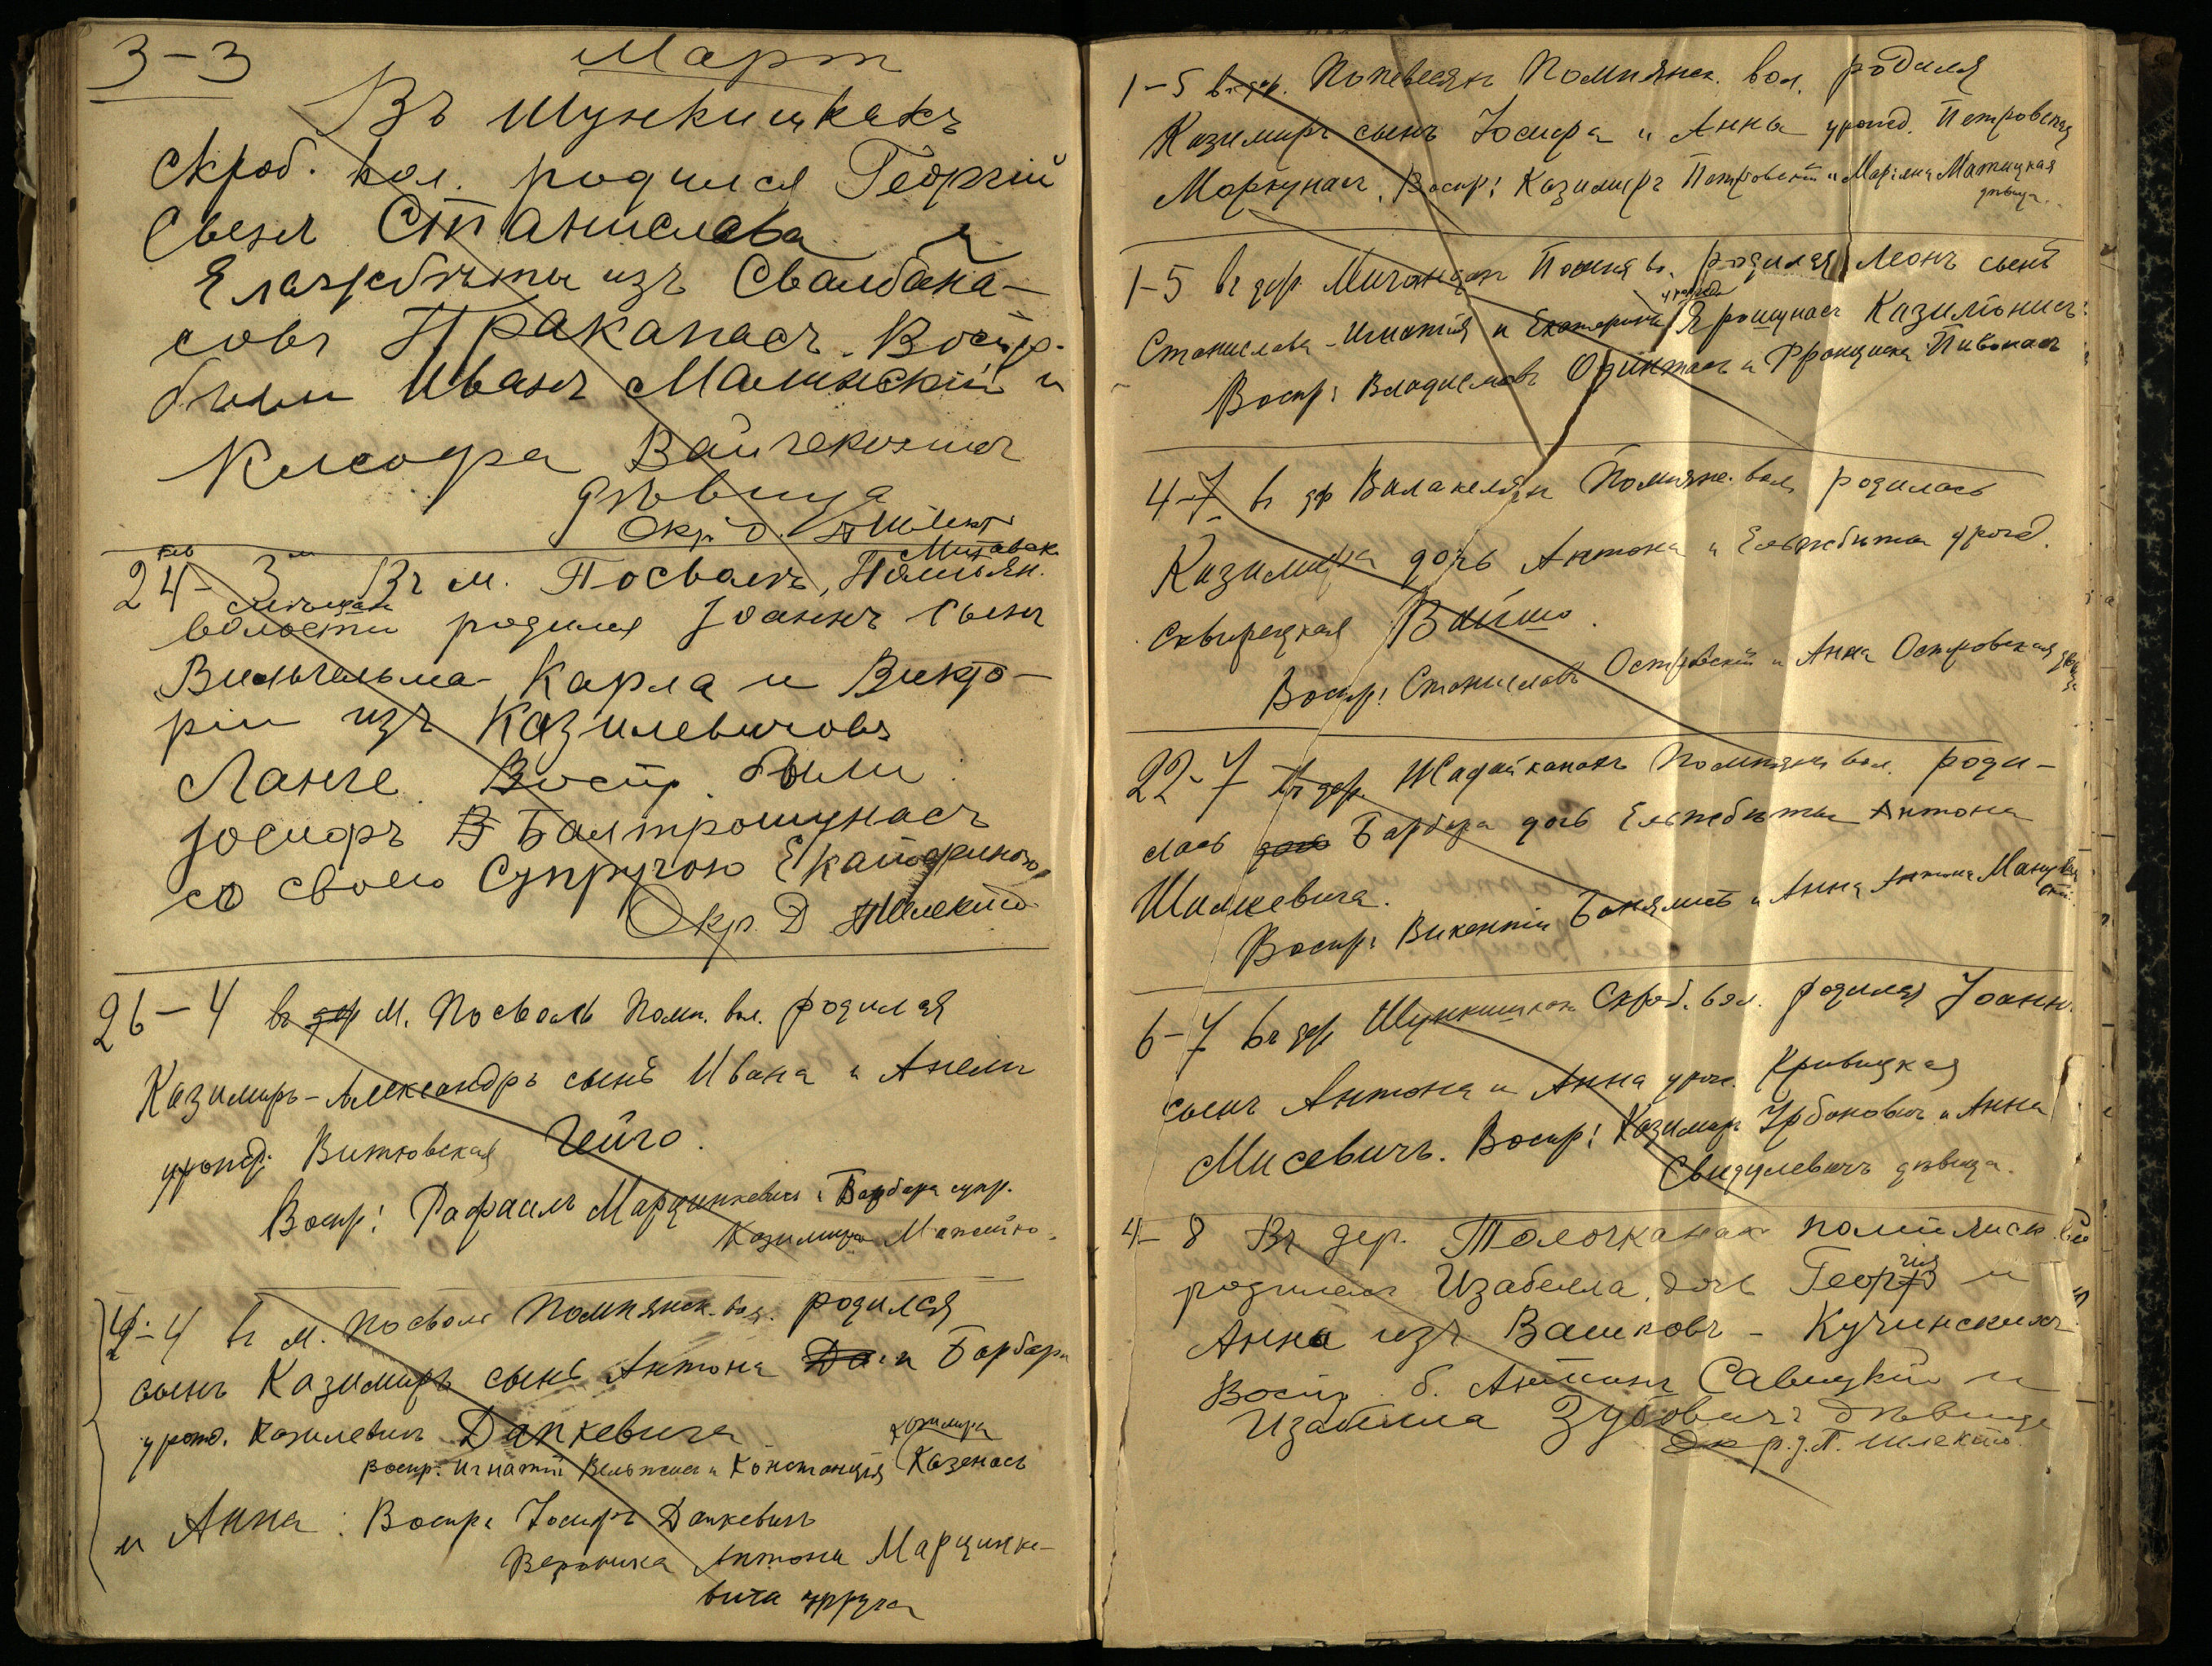 3-3 Мартъ
Въ Шункишкахъ
Скроб. вол. родился Георгій
сынъ Станислава и
Елизабѣты изъ Свалбана-
совъ Праканасъ. Воспр.
были Иванъ Малинскій и
Клеофа Вайчекоштъ
дѣвица
Окр. Д. Шлект
24 Feb - 3 Въ м. Посволь, Помпян.
волости родился Іоаннъ сынъ
Вильгельма-Карла и Викто-
ріи изъ Казилевичовъ
Ланге. Воспр. были:
Іосифъ Балтрошунасъ
со своею супругою Екатериною
Окр. Д Шлекто
26-4 въ дер м. Посволь Помп. вол. родился
Казимиръ-Александръ сынъ Ивана и Анели
урожд. Витковская Гейго.
Воспр: Рафаилъ Марцинкевичъ и Барбара супр.
Казимира
-4 въ м. Посволь Помпянск. вол. родился
сынъ Казимиръ сынъ Антона и Барбары
урожд. Казилевичъ Данкевича
воспр. Игнатій и Констанція Казимира Казенасъ
и Анна: Воспр: Іосифъ Данкевичъ
Вероника Антона Марцинке-
вича супруга
1-5 въ дер. Помпянск. вол. родился
Казимиръ сынъ Іосифа и Анны урожд. Петровская
Моркунасъ. Воспр: Казимиръ Петровскій и Маріяна Матицкая
дѣвица.
1-5 въ дер. Помпя во. родился Леонъ сынъ
Станислава-Игнатія и Екатерины урожд. Ярошунасъ Казимонисъ:
Воспр: Владиславъ Одинтасъ и Франциска Пивонасъ
4-7 въ др Вилакелянъ Помпян. вол. родилась
Казимира дочь Антона и Ельжбиты урожд.
Сквирецкая Войшо.
Воспр: Станиславъ Островскій и Анна Островская дѣвица
22-7 въ дер. Жадайканахъ Помпянск вол. роди-
лась дочь Барбара дочь Ельжбиты Антона
Шимкевича.
Воспр: Викентій и Анна Антона
6-7 въ дер Шункишкахъ Скроб. вол. родился Іоаннъ
сынъ Антона и Анна урож. Кривицкая
Мисевичъ. Воспр: Казимиръ Урбановичъ и Анна
Свидулевичъ дѣвица.
4-8 Въ дер. Толочканахъ помпянск. вол
родилась Изабелла, дочь Георгія и
Анна изъ Вашковъ - Кучинскихъ
Воспр. б. Антонъ Савицкій и
Изабелла Зубовичъ дѣвица
Окр. д. П. Шлекто.